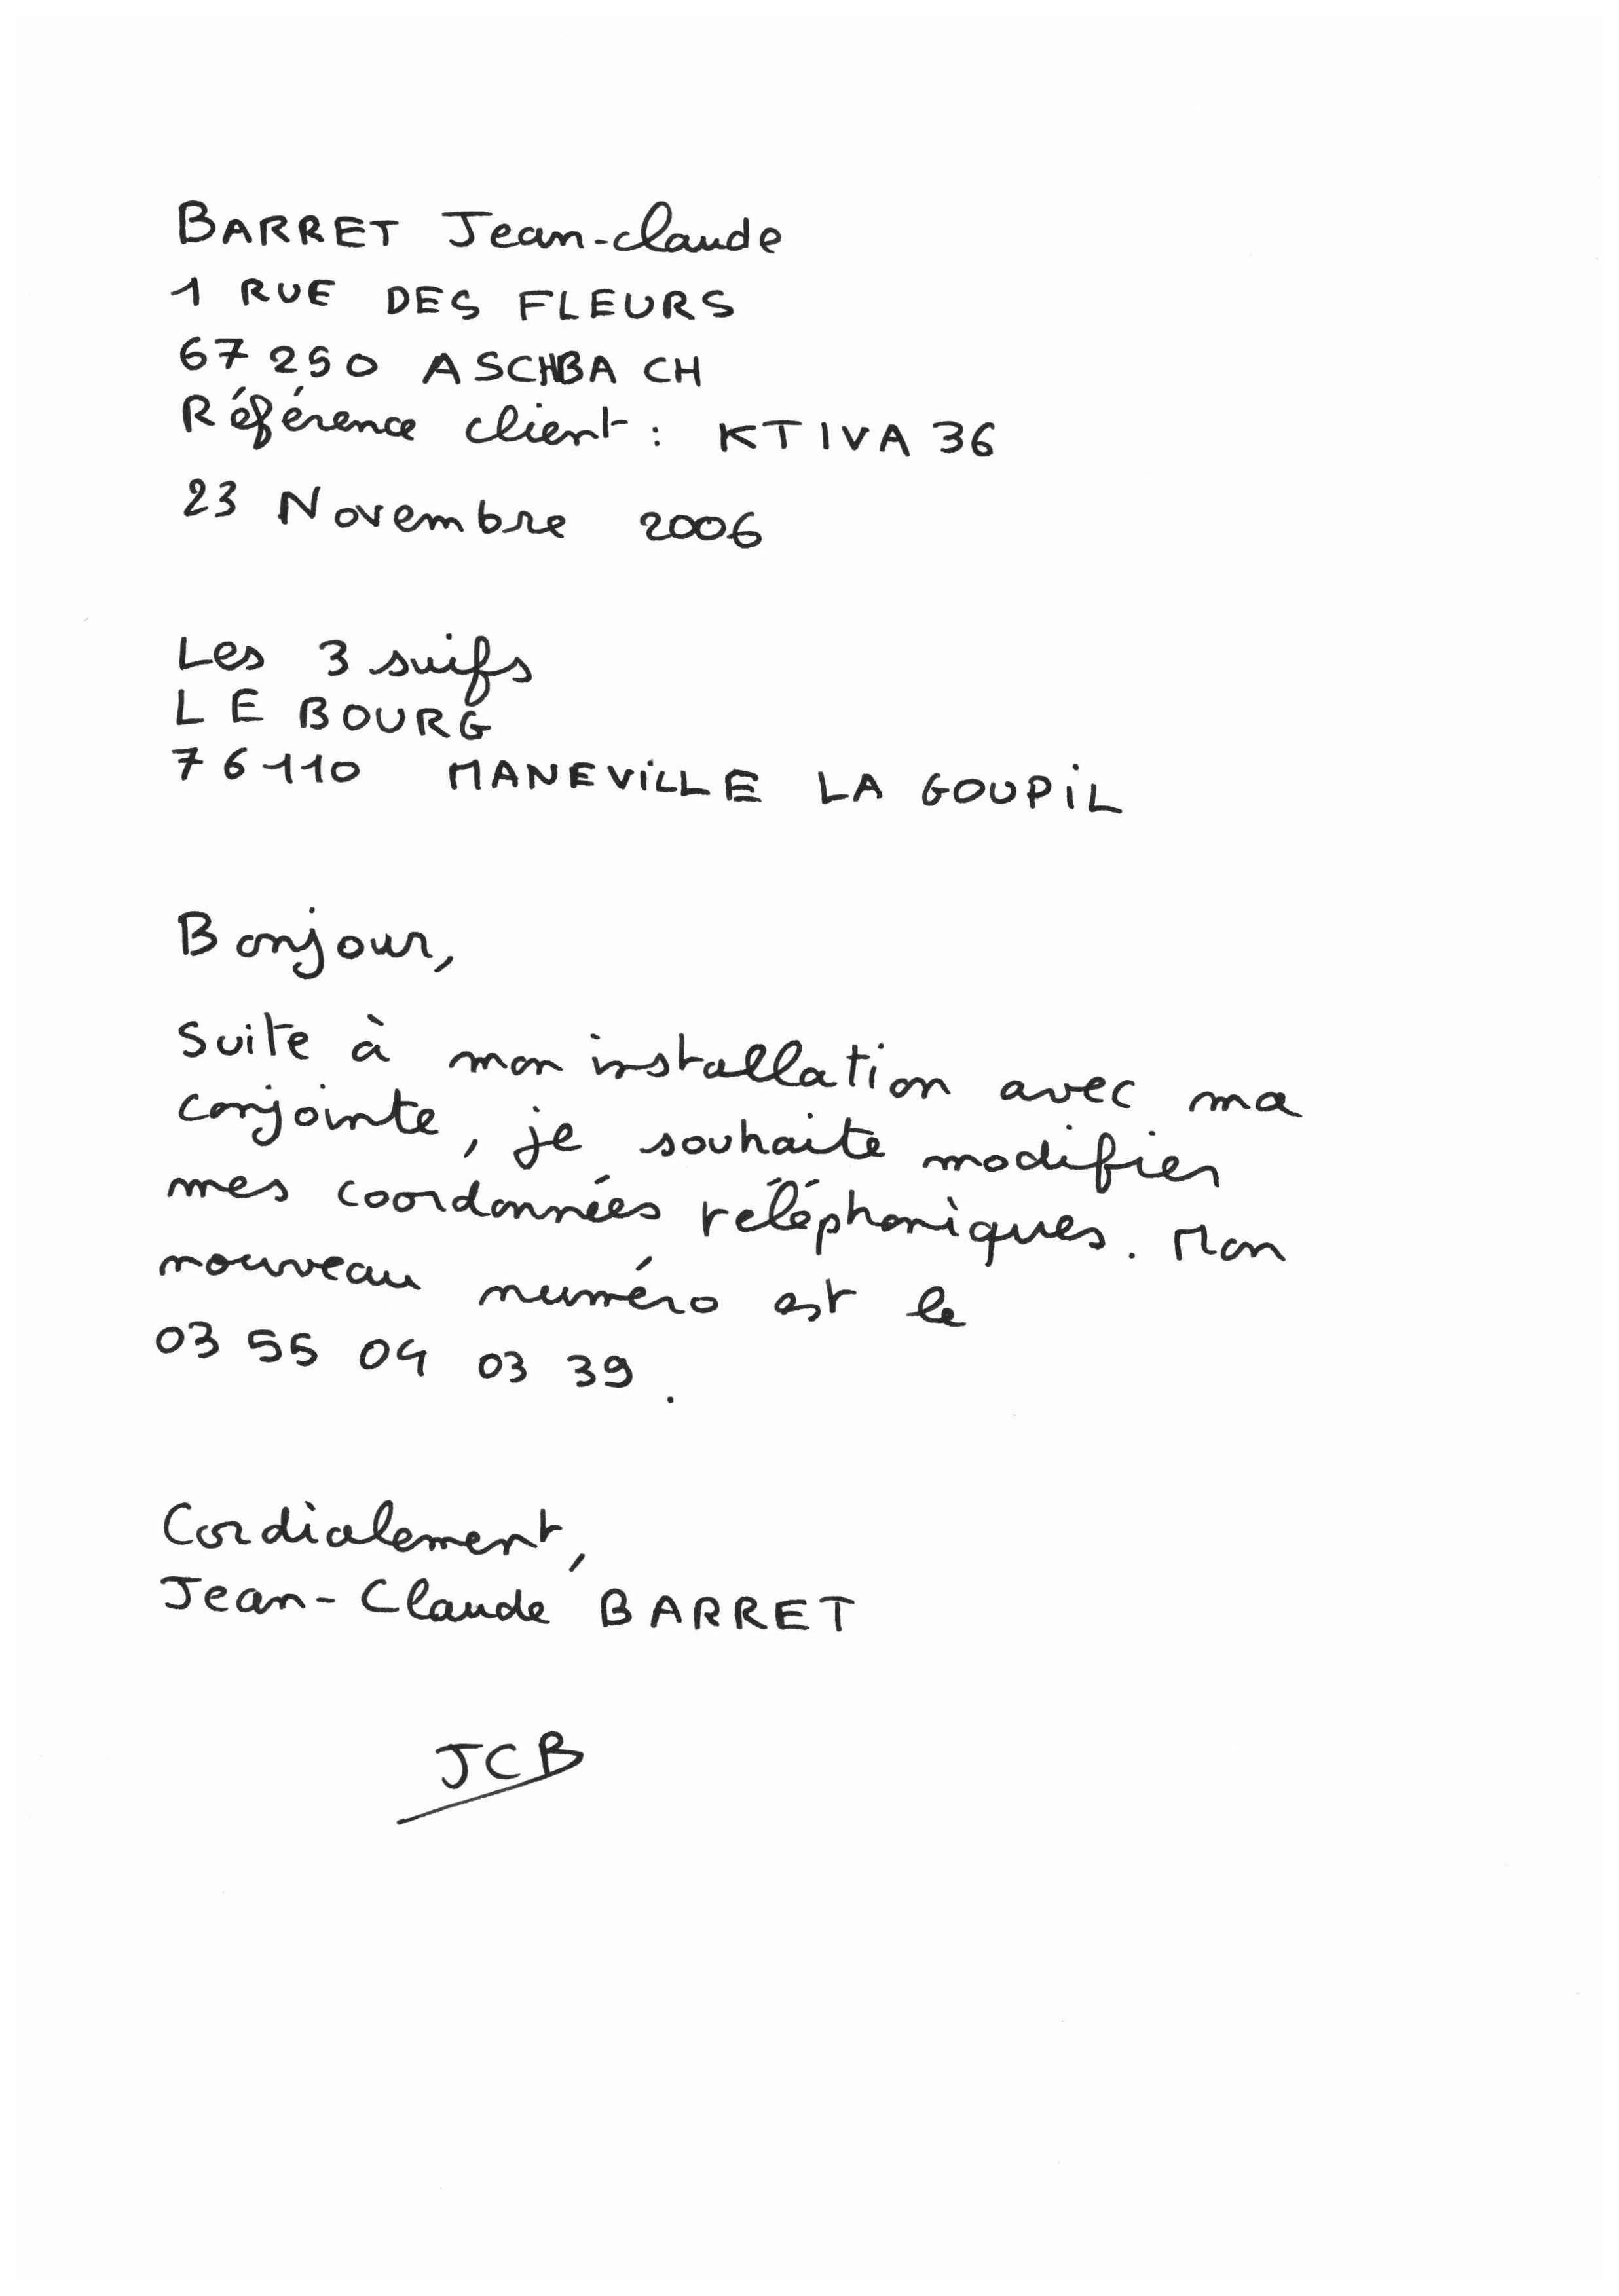 BARRET Jean-claude
1 RUE DES FLEURS
67250 ASCHBACH
Référence client : KTIVA36
23 Novembre 2006
Les 3 suifs
LE BOURG
76110 MANEVILLE LA GOUPIL
Bonjour,
Suite à mon installation avec ma
conjointe, je souhaite modifier
mes coordonnées téléphoniques. Mon
nouveau numéro est le
03 55 04 03 39.
Cordialement,
Jean-Claude BARRET
JCB